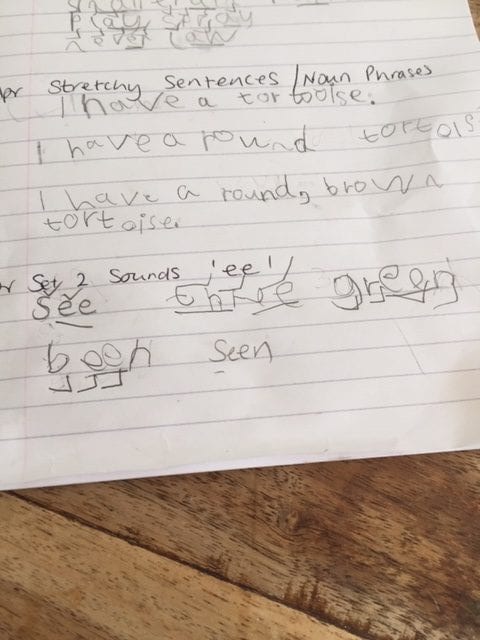 play spray
pr Stretchy Sentences / Noun Phrases
I have a tortoise.
I have a round tortois
I have a round, brown
tortoise.
r Set 2 Sounds 'ee' /
See three green
been Seen